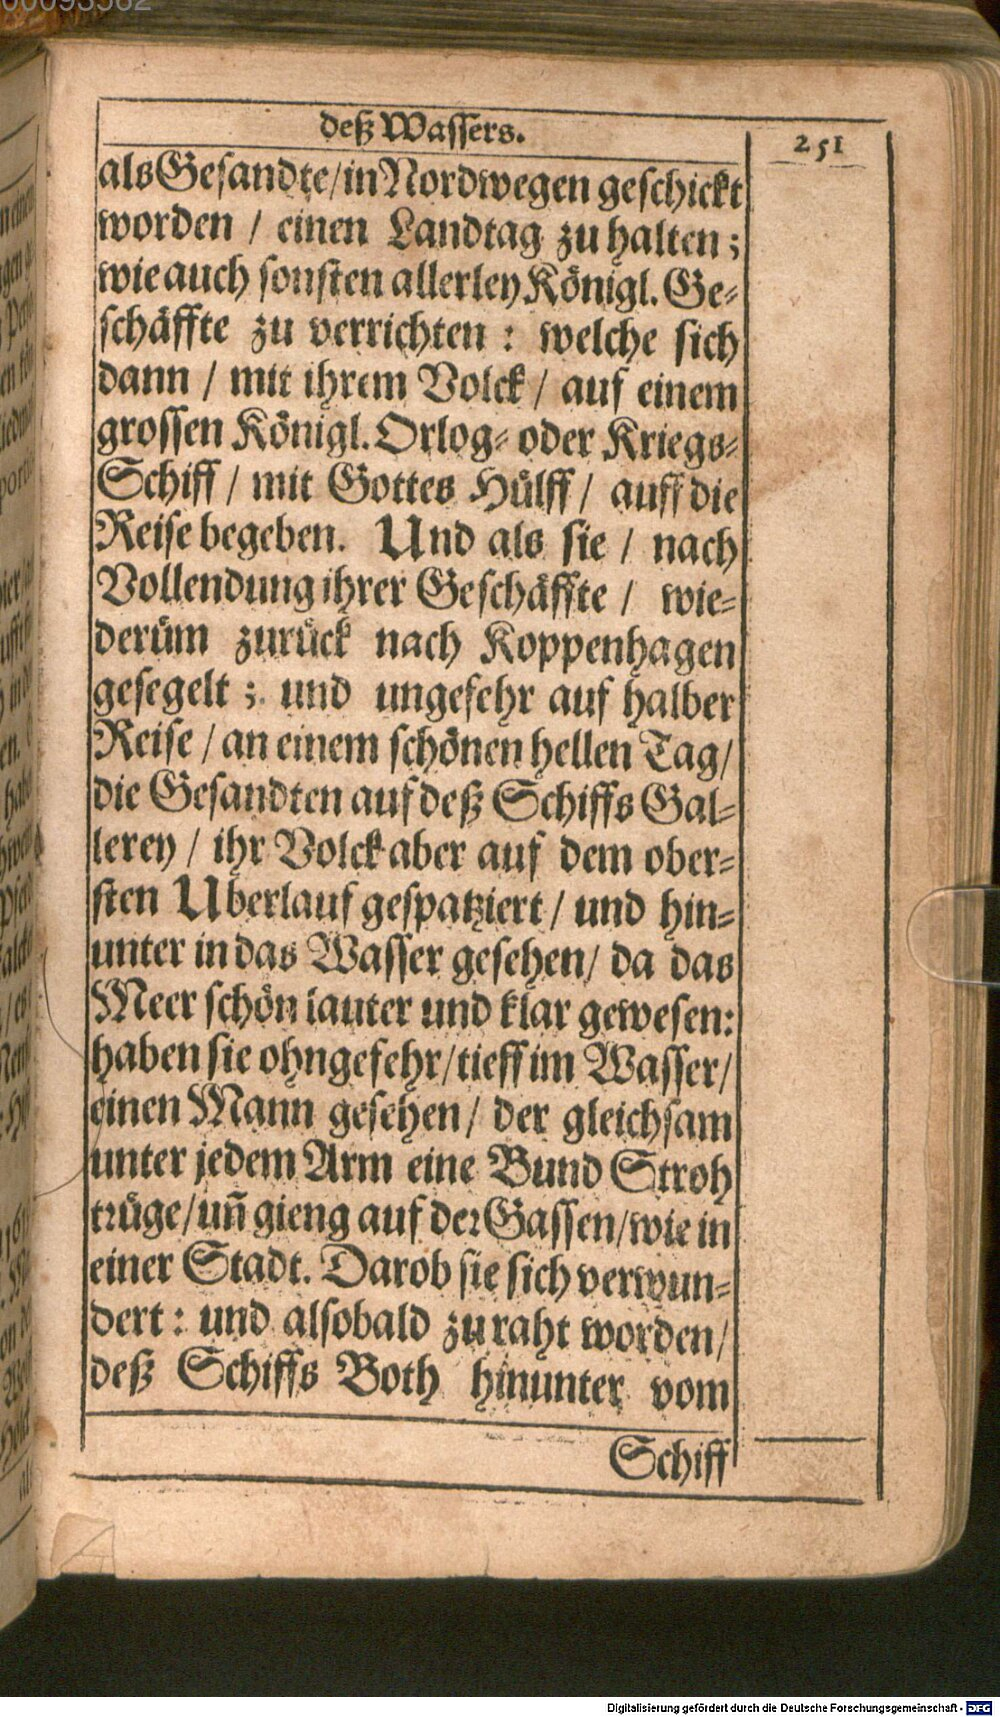 00093562
deß Wassers.
251
als Gesandte/in Nordwegen geschickt
worden / einen Landtag zu halten;
wie auch sonsten allerley Königl. Ge-
schäffte zu verrichten : welche sich
dann / mit ihrem Volck / auf einem
grossen Königl. Orlog- oder Kriegs-
Schiff / mit Gottes Hülff / auff die
Reise begeben. Und als sie / nach
Vollendung ihrer Geschäffte / wie-
derüm zurück nach Koppenhagen
gesegelt ; und ungefehr auf halber
Reise / an einem schönen hellen Tag/
die Gesandten auf deß Schiffs Gal-
lerey / ihr Volck aber auf dem ober-
sten Uberlauf gespatziert / und hin-
unter in das Wasser gesehen/ da das
Meer schön lauter und klar gewesen:
haben sie ohngefehr/tieff im Wasser/
einen Mann gesehen/ der gleichsam
unter jedem Arm eine Bund Stroh
trüge/uñ gieng auf der Gassen/wie in
einer Stadt. Darob sie sich verwun-
dert : und alsobald zu raht worden/
deß Schiffs Both hinunter vom
Schiff
Digitalisierung gefördert durch die Deutsche Forschungsgemeinschaft - DFG